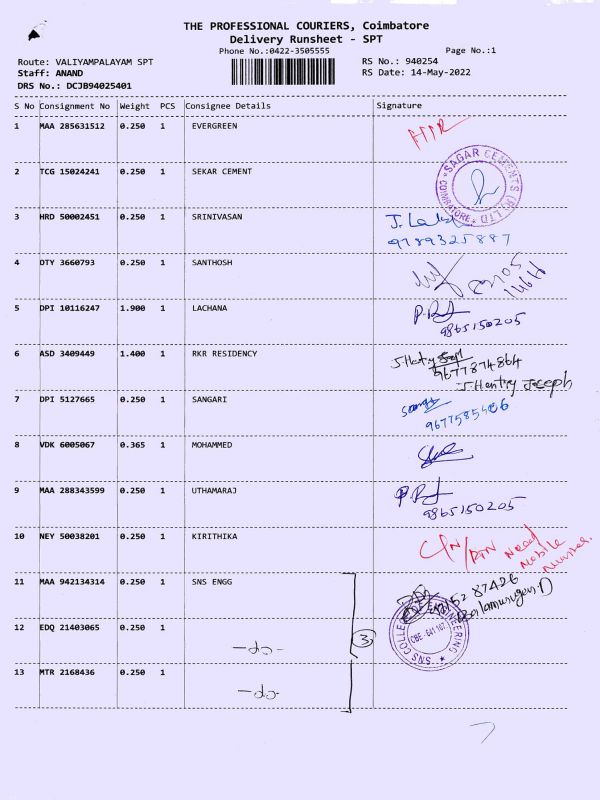 THE PROFESSIONAL COURIERS, Coimbatore
Delivery Runsheet - SPT
Phone No.:0422-3505555
Page No.:1
Route: VALIYAMPALAYAM SPT
RS No.: 940254
Staff: ANAND
RS Date: 14-May-2022
DRS No.: DCJB94025401
S No Consignment No Weight PCS Consignee Details Signature
1 MAA 285631512 0.250 1 EVERGREEN
2 TCG 15024241 0.250 1 SEKAR CEMENT
SAGAR CEMENTS (R) LTD COIMBATORE
3 HRD 50002451 0.250 1 SRINIVASAN
9789325887
4 DTY 3660793 0.250 1 SANTHOSH
5 DPI 10116247 1.900 1 LACHANA
9865150205
6 ASD 3409449 1.400 1 RKR RESIDENCY
9677874864
J.Hentry Joseph
7 DPI 5127665 0.250 1 SANGARI
8 VDK 6005067 0.365 1 MOHAMMED
9 MAA 288343599 0.250 1 UTHAMARAJ
9865150205
10 NEY 50038201 0.250 1 KIRITHIKA
Need
Mobile
Number.
11 MAA 942134314 0.250 1 SNS ENGG
87426
Balamurugan.D
12 EDQ 21403065 0.250 1
-do-
3
SNS COLLEGE OF ENGINEERING
CBE - 641 107
13 MTR 2168436 0.250 1
-do-